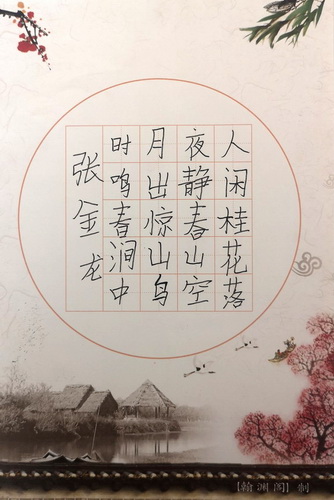 人闲桂花落
夜静春山空
月出惊山鸟
时鸣春涧中
张金龙
【翰渊阁】制